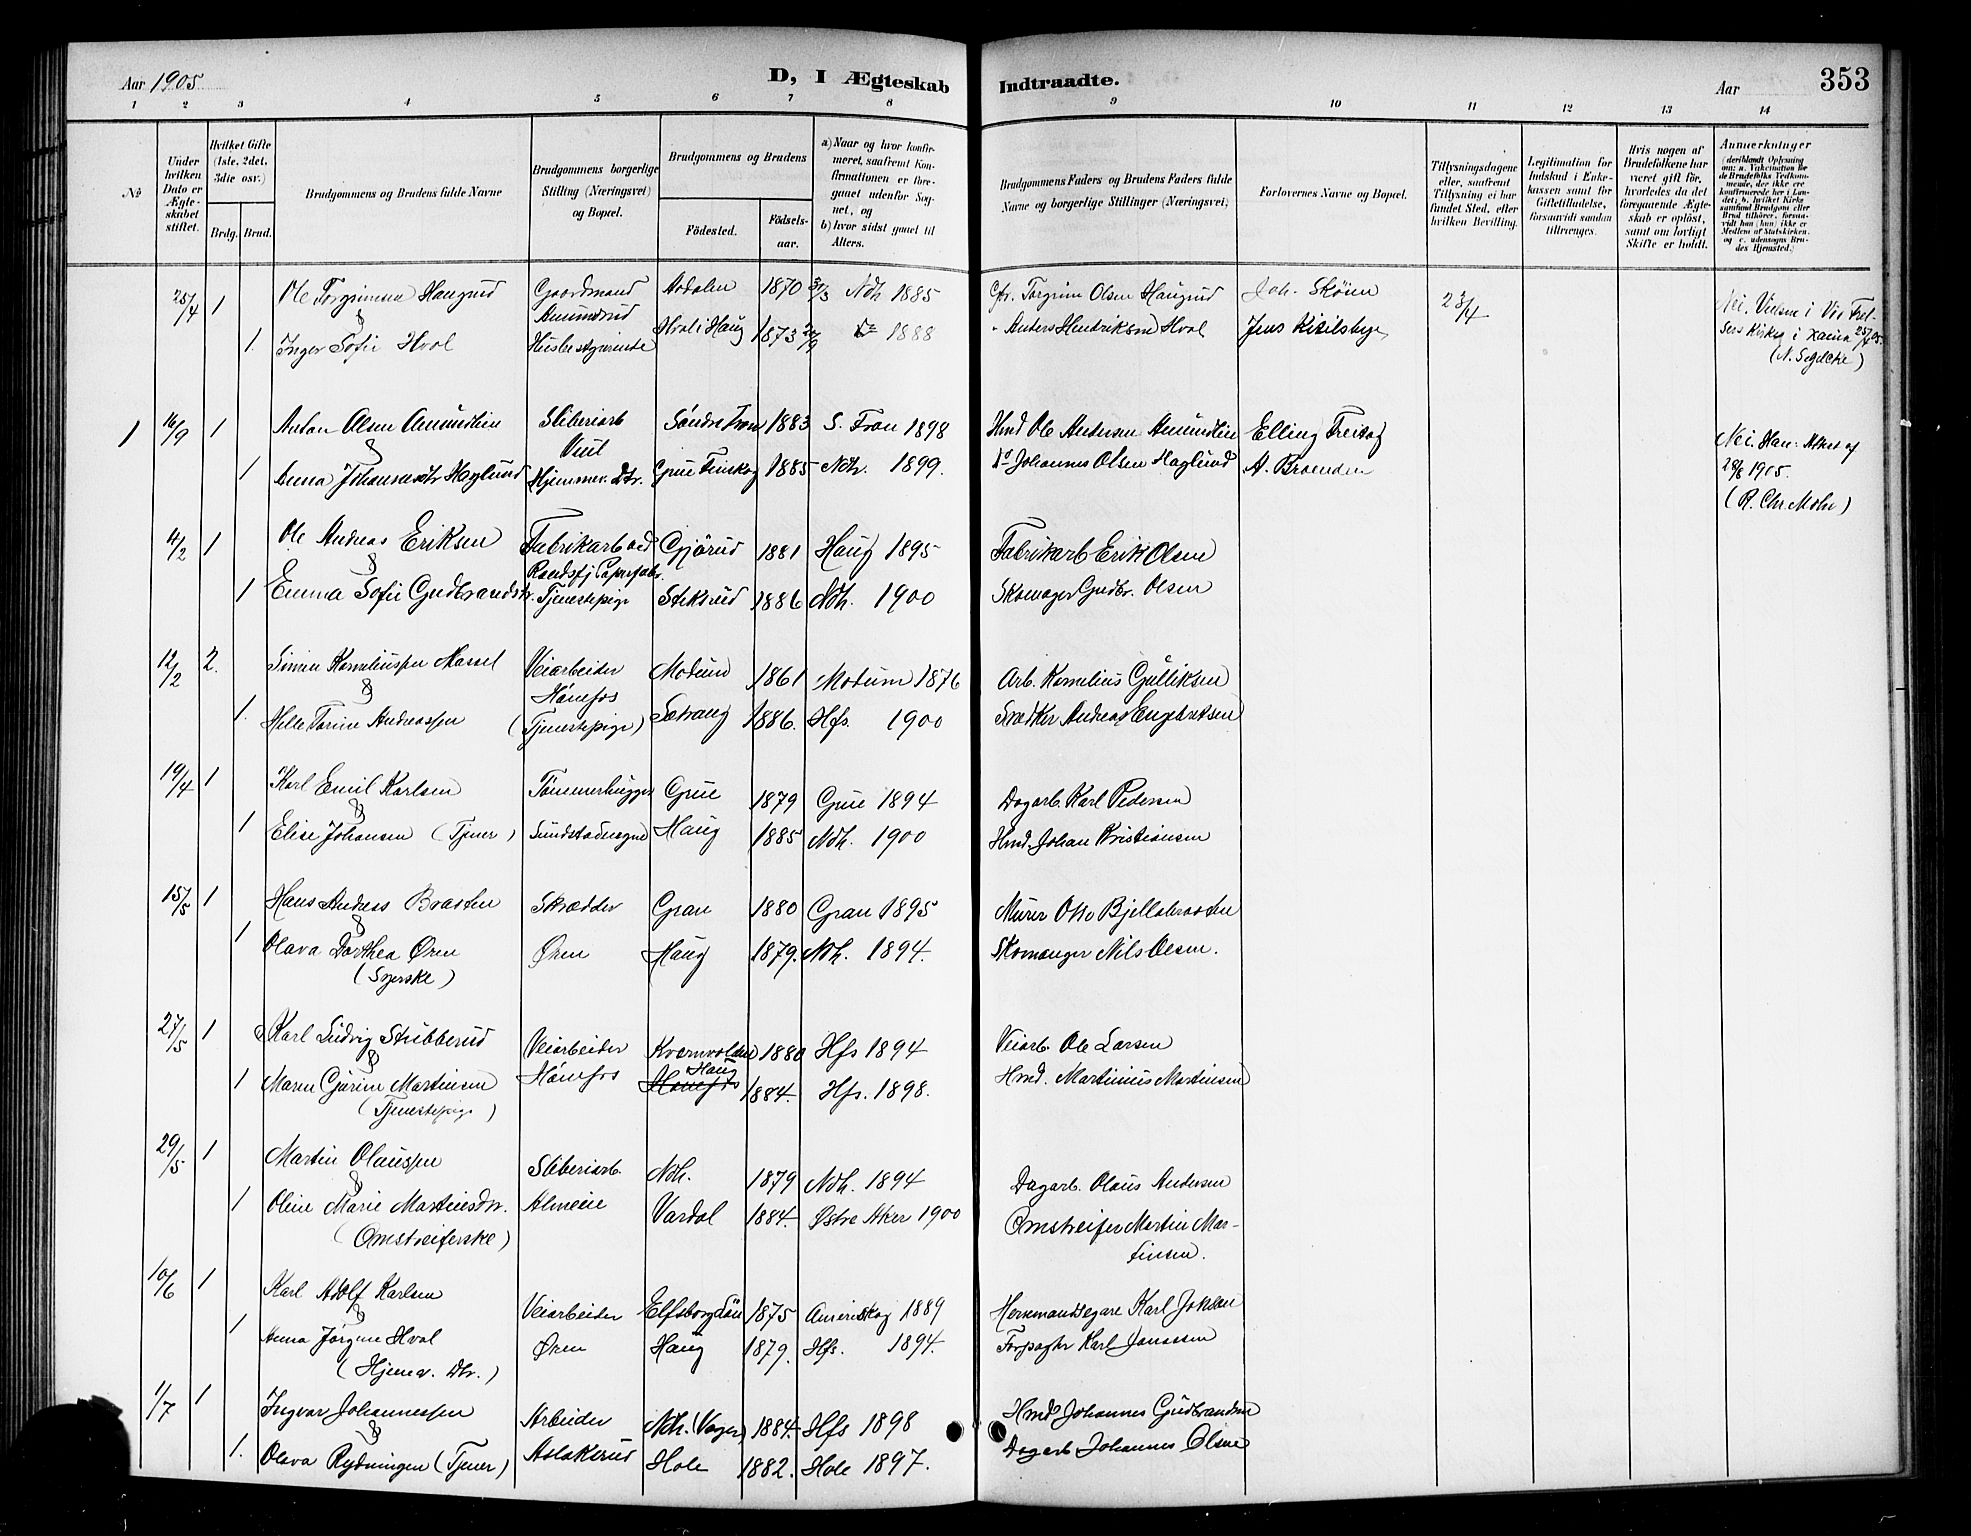 Aar 1905
D, I Ægteskab Indtraadte.
Aar
353
1 2 3 4 5 6 7 8 9 10 11 12 13 14
No
Under hvilken Dato er Ægteskabet stiftet.
Hvilket Gifte (1ste, 2det, 3die osv.)
Brdg. Brud.
Brudgommens og Brudens fulde Navne
Brudgommens borgerlige Stilling (Næringsvei) og Bopæl.
Brudgommens og Brudens
Fødested.
Fødsels-aar.
a) Naar og hvor konfirmeret, saafremt Konfirmationen er foregaaet udenfor Sognet, og
b) hvor sidst gaaet til Alters.
Brudgommens Faders og Brudens Faders fulde Navne og borgerlige Stillinger (Næringsvei).
Forlovernes Navne og Bopæl.
Tillysningsdagene eller, saafremt Tillysning ei har fundet Sted, efter hvilken Bevilling.
Legitimation for Indskud i Enkekassen samt for Giftetilladelse, forsaavidt saadan tiltrænges.
Hvis nogen af Brudefolkene har været gift før, hvorledes da det foregaaende Ægteskab er opløst, samt om lovligt Skifte er holdt.
Anmerkninger
25/4 1 Ole Torgrimsen Haugrud Gaardmand Aadalen 1870 Ndh 1885 Torgrim Olsen Haugrud Joh. Skøien 23/4
&
1. Inger Sofie Hval Husbestyrerinde Hval i Haug 1873 1888 Anders Hendriksen Hval Jens Kihlsbye
(N. Segelcke)
1 16/9 1 Anton Olsen Amundlien Sliberiarb Søndre Fron 1883 S. Fron 1898 Hmd Ole Andersen Amundlien Elling Freitag
& Viul
1 Anna Johannesdtr Haglund Hjemmev. Dtr. Grue Finskog 1885 Ndh. 1899. Do Johannes Olsen Haglund A. Braenden
Nei. Han: Attest af 28/8 1905.
(R. Chr. Mohn)
4/2 1 Ole Andreas Eriksen Fabrikarb ved Gjørud 1881 Haug 1895 Fabrikarb Erik Olsen
& Randsfj Papirfabr.
1 Emma Sofie Gudbrandsdtr. Tjenestepige Steksrud 1886 Ndh. 1900 Skomager Gudbr. Olsen
12/2 2. Simen Korneliussen Veiarbeider Modum 1861 Modum 1876 Arb. Kornelius Gulliksen
& Hønefos
1. Helle Torine Andreassen (Tjenestepige) Sætrang 1886. Hfs. 1900 Andreas Engebretsen
19/4 1 Karl Emil Karlsen Tømmerhugger Grue 1879 Grue 1894 Dagarb. Karl Pedersen
&
1 Elise Johansen (Tjener) Haug 1885 Ndh. 1900 Hmd. Johan Kristiansen
15/5 1 Hans Andreas Braaten Skrædder Gran 1880 Gran 1895 Murer Otto Bjellabraaten
&
1 Olava Dorthea Øren Øren Haug 1879. Ndh. 1894. Skomager Nils Olsen.
(Syerske)
27/5 1 Karl Ludvig Stubberud Veiarbeider Kværnvolden 1880 Hfs 1894 Veiarb. Ole Larsen
& Hønefos Haug
1 Maren Gurine Martinsen Hønefos 1884. Hfs. 1898. Hmd. Martinius Martinsen
(Tjenestepige)
29/5 1 Martin Olaussen Sliberiarb. Ndh. 1879 Ndh. 1894 Dagarb. Olaus Andersen
&
1 Oline Marie Martinsdtr. Almeie Vardal 1884. Østre Aker 1900 Omstreifer Martin Martinsen.
(Omstreiferske)
10/6 1 Karl Adolf Karlsen Veiarbeider Elfsborgslän 1875 1889 Hemmansegare Karl
&
1 Anna Jørgine Hval Øren Haug 1879. Hfs. 1894. Forpagtr Karl Janassen
(Hjemv. Dtr.)
1/7 1 Ingvar Johannessen Arbeider Ndh. (Vager) 1884. Hfs 1898 Hmd Johannes Gudbrandsen
&
1. Olava Rydningen (Tjener) Aslaksrud Hole 1882. Hole 1897. Dagarb Johannes Olsen